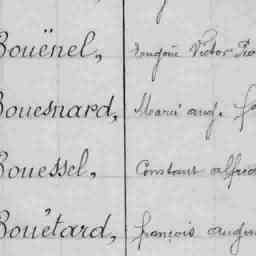 Bouënel, Eugène Victor
Bouesnard, Marie aug.
Bouessel, Constant alfred
Bouëtard, françois